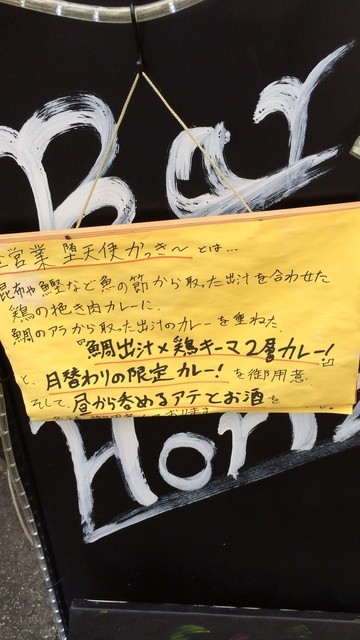 Bar
営業 堕天使かっき〜 とは…
昆布や鰹など魚の節から取った出汁を合わせた
鶏の挽き肉カレーに、
鯛のアラから取った出汁のカレーを重ねた
『鯛出汁×鶏キーマ2層カレー!』
と、月替わりの限定カレー!を御用意
そして、昼から呑めるアテとお酒を
Horn